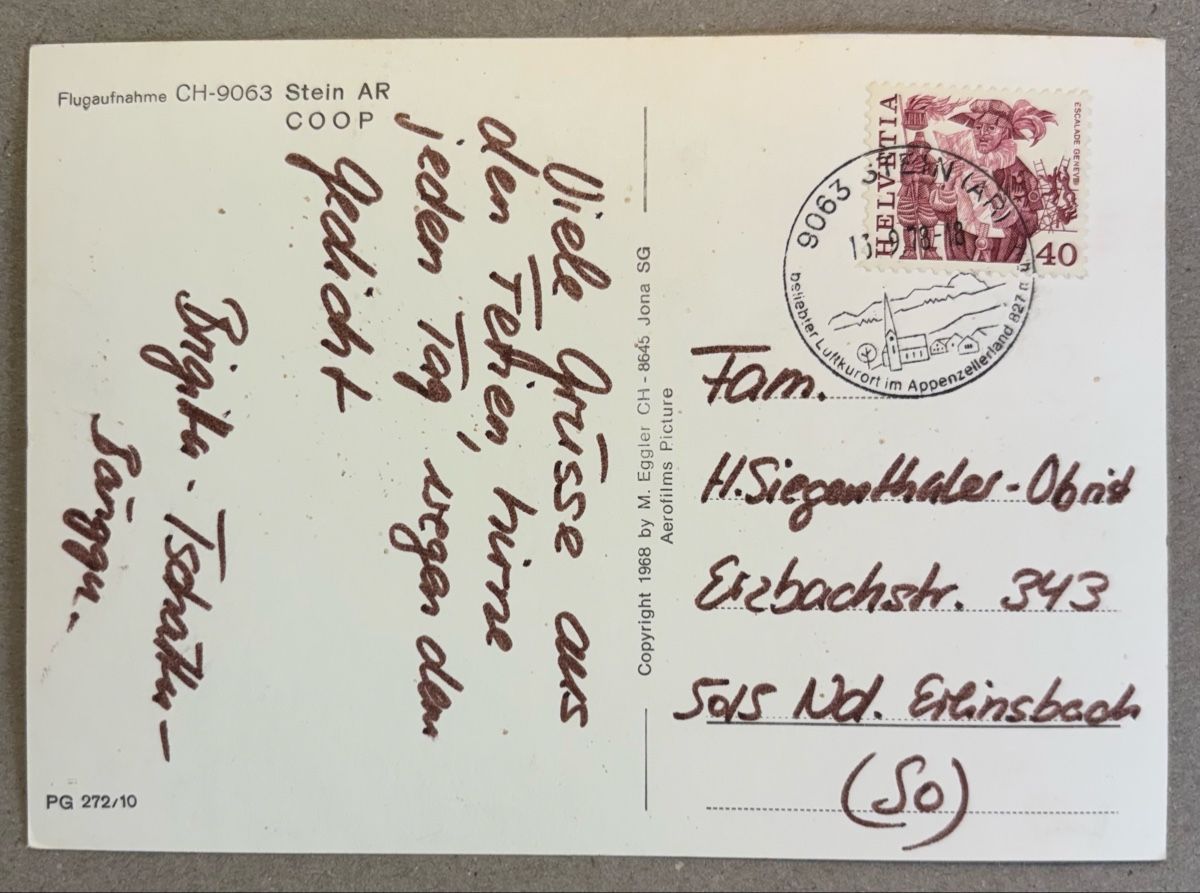 Flugaufnahme CH-9063 Stein AR
COOP
Viele Grüsse aus
den Ferien, hirne
jeden Tag, wegen dem
Gedicht
Copyright 1968 by M. Eggler CH - 8645 Jona SG
Aerofilms Picture
PG 272/10
HELVETIA
ESCALADE GENEVE
40
9063 STEIN (AR)
13.9.78-18
beliebter Luftkurort im Appenzellerland 827 m
Fam.
H. Siegenthaler-Obrist
Erzbachstr. 343
5015 Nd. Erlinsbach
(So)